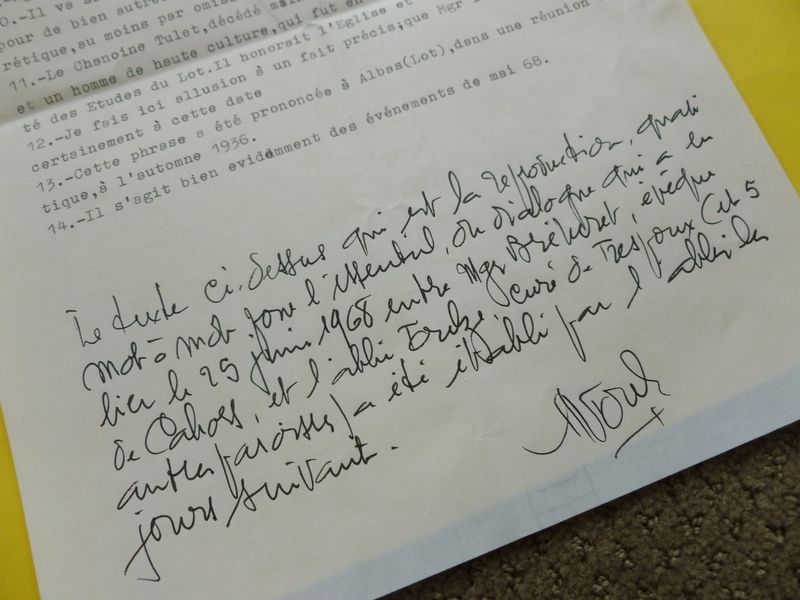 0.-Il va s
pour de bien autre
rétique,au moins par omis
11.-Le Chanoine Tulet,décédé
et un homme de haute culture,qui fut en
té des Etudes du Lot.Il honorait l'Eglise et
12.-Je fais ici allusion à un fait précis;que Mgr
certainement à cette date
13.-Cette phrase a été prononcée à Albas(Lot),dans une réunion
tique,à l'automne 1936.
14.-Il s'agit bien evidemment des événements de mai 68.
Le texte ci-dessus qui est la reproduction, quasi
mot à mot pour l'essentiel, du dialogue qui a eu
lieu le 25 juin 1968 entre Mgr Bréheret, évêque
de Cahors, et l'abbé curé de Trespoux (et 5
autres paroisses) a été établi par l'abbé les
jours suivant.